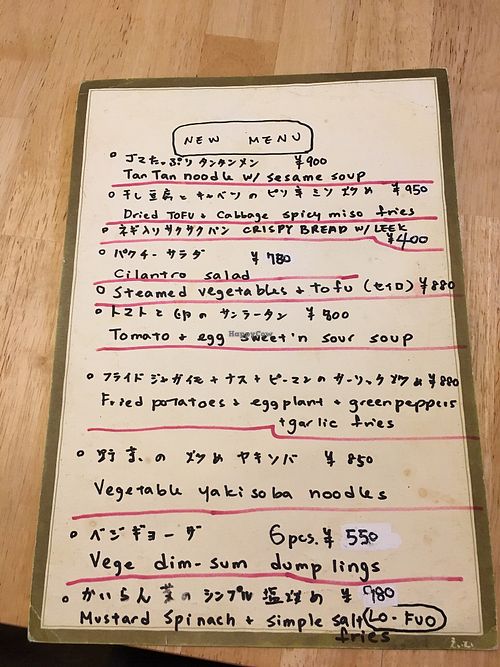 NEW MENU
ゴマたっぷりタンタンメン ¥900
Tan Tan noodle w/ sesame soup
干し豆腐とキャベツのピリ辛ミソ炒め ¥950
Dried TOFU + Cabbage spicy miso fries
ネギ入りサクサクパン CRISPY BREAD W/ LEEK
¥400
パクチー サラダ ¥780
Cilantro salad
Steamed vegetables + tofu (セイロ) ¥880
トマトと卵のサンラータン ¥500
Tomato + egg sweet'n sour soup
HappyCow
フライドジャガイモ+ナス+ピーマンのガーリック炒め ¥880
Fried potatoes + eggplant + greenpeppers
+garlic fries
野菜の炒めヤキソバ ¥850
Vegetable yakisoba noodles
ベジギョーザ 6pcs. ¥550
Vege dim-sum dumplings
かいらん菜のシンプル塩炒め ¥780
Mustard Spinach + simple salt (LO-FUO)
fries